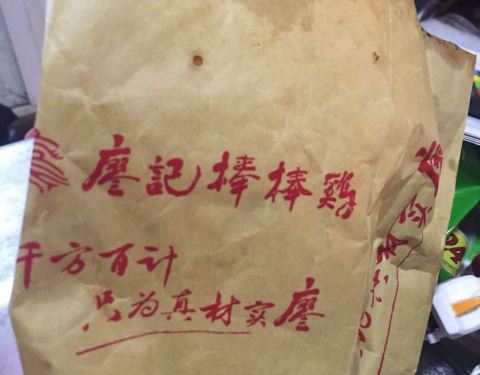 廖記棒棒雞
千方百计
只为真材实廖